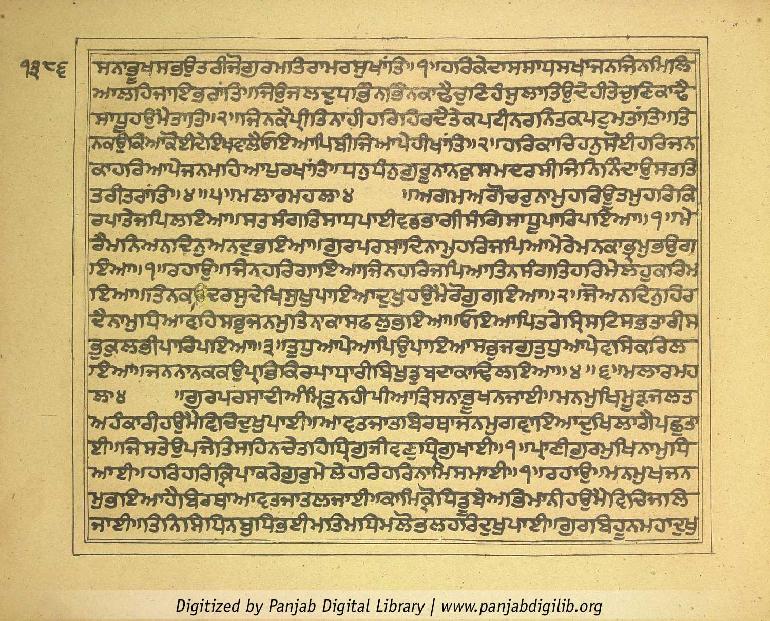 ੧੩੮੬
ਸਨਾਭੂਖਸਭਉਤਰੀਜੋਗੁਰਮਤਿਰਾਮਰਸੁਖਾਂਤਿ॥੧॥ਹਰਿਕੇਦਾਸਸਾਧਸਖਾਜਨਜਿਨਮਿਲਿ
ਆਲਹਿਜਾਇਭਰਾਂਤਿ॥ਜਿਉਜਲਦੁਧਭਿੰਨਭਿੰਨਕਾਢੈਚੁਣਿਹੰਸੁਲਾਤਿਉਦੇਹੀਤੇਚੁਣਿਕਾਢੈ
ਸਾਧੂਹਉਮੈਤਾਤਿ॥੨॥ਜਿਨਕੈਪ੍ਰੀਤਿਨਾਹੀਹਰਿਹਿਰਦੈਤੇਕਪਟੀਨਰਨਿਤਕਪਟੁਮਤਾਂਤਿ॥ਤਿ
ਨਕਉਕਿਆਕੋਈਦੇਇਖਵਾਲੈਓਇਆਪਿਬੀਜਿਆਪੇਹੀਖਾਂਤਿ॥੨॥ਹਰਿਕਾਚਿਹਨੁਸੋਈਹਰਿਜਨ
ਕਾਹਰਿਆਪੇਜਨਮਹਿਆਪੁਰਖਾਂਤਿ॥ਧਨੁਧੰਨੁਗੁਰੂਨਾਨਕੁਸਮਦਰਸੀਜਿਨਿਨਿੰਦਾਉਸਤਤਿ
ਤਰੀਤਰਾਂਤਿ॥੪॥੫॥ਮਲਾਰਮਹਲਾ੪ ॥ਅਗਮਅਗੋਚਰੁਨਾਮੁਹਰਿਊਤਮੁਹਰਿਕਿ
ਰਪਾਤੇਜਪਿਲਾਇਆ॥ਸਤਸੰਗਤਿਸਾਧਪਾਈਵਡਭਾਗੀਸੰਗਿਸਾਧੂਪਾਰਿਪਾਇਆ॥੧॥ਮੇ
ਰੈਮਨਿਅਨਦਿਨੁਅਨਦੁਭਇਆ॥ਗੁਰਪਰਸਾਦਿਨਾਮੁਹਰਿਜਪਿਆਮੇਰੇਮਨਕਾਭ੍ਰਮੁਭਉਗ
ਇਆ॥੧॥ਰਹਾਉ॥ਜਿਨਹਰਿਗਾਇਆਜਿਨਹਰਿਜਪਿਆਤਿਨਸੰਗਤਿਹਰਿਮੇਲਹੁਕਰਿਮ
ਇਆ॥ਤਿਨਕਾਦਰਸੁਦੇਖਿਸੁਖੁਪਾਇਆਦੁਖੁਹਉਮੈਰੋਗੁਗਇਆ॥੨॥ਜੋਅਨਦਿਨੁਹਿਰ
ਦੈਨਾਮੁਧਿਆਵਹਿਸਭੁਜਨਮੁਤਿਨਕਾਸਫਲੁਭਇਆ॥ਓਇਆਪਿਤਰੇਸ੍ਰਿਸਟਿਸਭਤਾਰੀਸ
ਭੁਕੁਲਭੀਪਾਰਿਪਾਇਆ॥੩॥ਤੁਧੁਆਪੇਆਪਿਉਪਾਇਆਸਭੁਜਗੁਤੁਧੁਆਪੇਵਸਿਕਰਿਲ
ਇਆ॥ਜਨਨਾਨਕਕਉਪ੍ਰਭਿਕਿਰਪਾਧਾਰੀਬਿਖੁਡੁਬਦਾਕਾਢਿਲਇਆ॥੪॥੬॥ਮਲਾਰਮਹ
ਲਾ੪ ॥ਗੁਰਪਰਸਾਦੀਅੰਮ੍ਰਿਤੁਨਹੀਪੀਆਤ੍ਰਿਸਨਾਭੂਖਨਜਾਈ॥ਮਨਮੁਖਮੂੜੑਜਲਤ
ਅਹੰਕਾਰੀਹਉਮੈਵਿਚਿਦੁਖੁਪਾਈ॥ਆਵਤਜਾਤਬਿਰਥਾਜਨਮੁਗਵਾਇਆਦੁਖਿਲਾਗੈਪਛੁਤਾ
ਈ॥ਜਿਸਤੇਉਪਜੇਤਿਸਹਿਨਚੇਤਹਿਧ੍ਰਿਗੁਜੀਵਣੁਧ੍ਰਿਗੁਖਾਈ॥੧॥ਪ੍ਰਾਣੀਗੁਰਮੁਖਿਨਾਮੁਧਿ
ਆਈ॥ਹਰਿਹਰਿਕ੍ਰਿਪਾਕਰੇਗੁਰੁਮੇਲੇਹਰਿਹਰਿਨਾਮਿਸਮਾਈ॥੧॥ਰਹਾਉ॥ਮਨਮੁਖਜਨ
ਮੁਭਇਆਹੈਬਿਰਥਾਆਵਤਜਾਤਲਜਾਈ॥ਕਾਮਿਕ੍ਰੋਧਿਡੂਬੇਅਭਿਮਾਨੀਹਉਮੈਵਿਚਿਜਲਿ
ਜਾਈ॥ਤਿਨਸਿਧਿਨਬੁਧਿਭਈਮਤਿਮਧਿਮਲੋਭਲਹਰਿਦੁਖੁਪਾਈ॥ਗੁਰਬਿਹੂਨਮਹਾਦੁਖੁ
Digitized by Panjab Digital Library | www.panjabdigilib.org